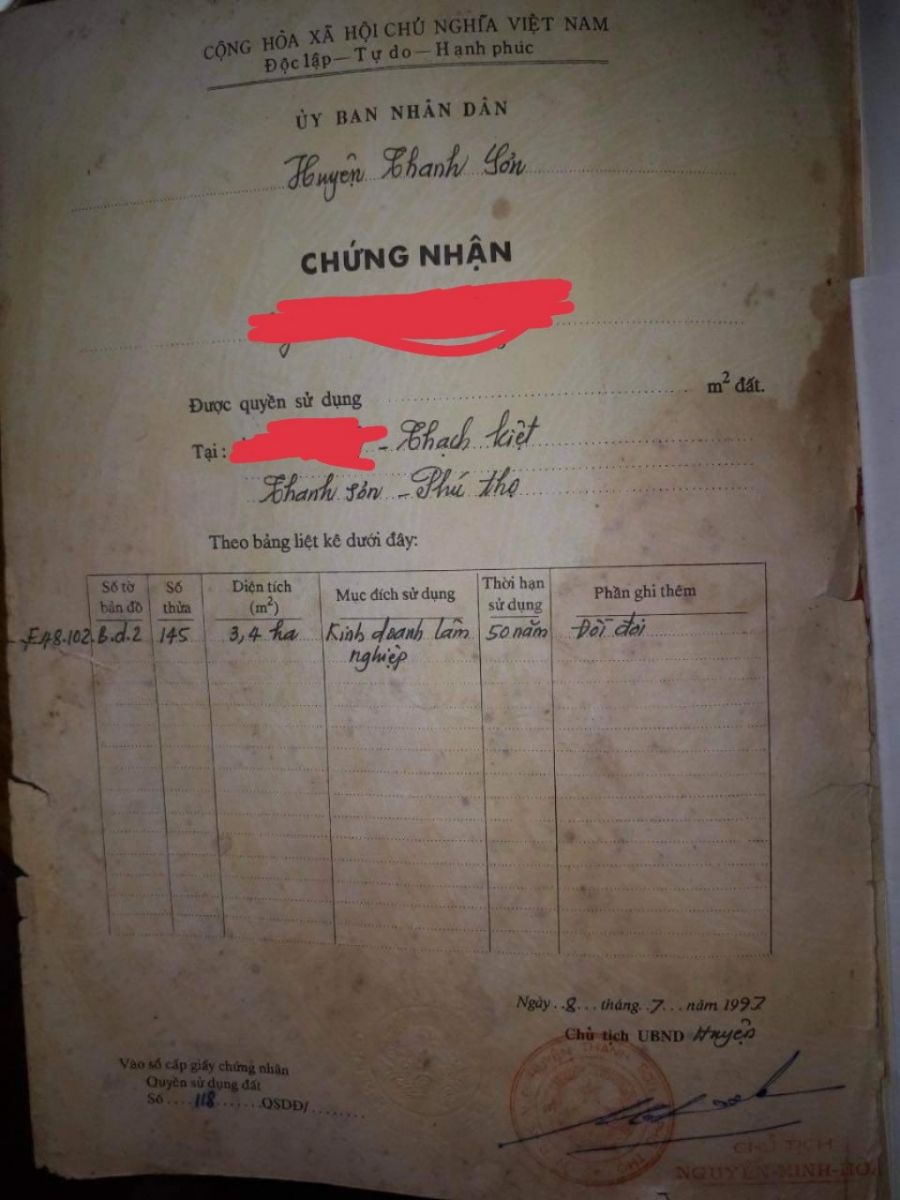 CỘNG HÒA XÃ HỘI CHỦ NGHĨA VIỆT NAM
Độc lập — Tự do — Hạnh phúc
ỦY BAN NHÂN DÂN
Huyện Thanh Sơn
CHỨNG NHẬN
Được quyền sử dụng m² đất.
Tại: - Thạch kiệt
Thanh sơn - Phú thọ
Theo bảng liệt kê dưới đây:
Số tờ bản đồ Số thửa Diện tích (m²) Mục đích sử dụng Thời hạn sử dụng Phần ghi thêm
B.d.2 145 3,4 ha Kinh doanh lâm nghiệp 50 năm Đồi
Ngày 8 tháng 7 năm 1997
Chủ tịch UBND Huyện
Vào sổ cấp giấy chứng nhận
Quyền sử dụng đất
Số 118 QSDĐ/
CHỦ TỊCH